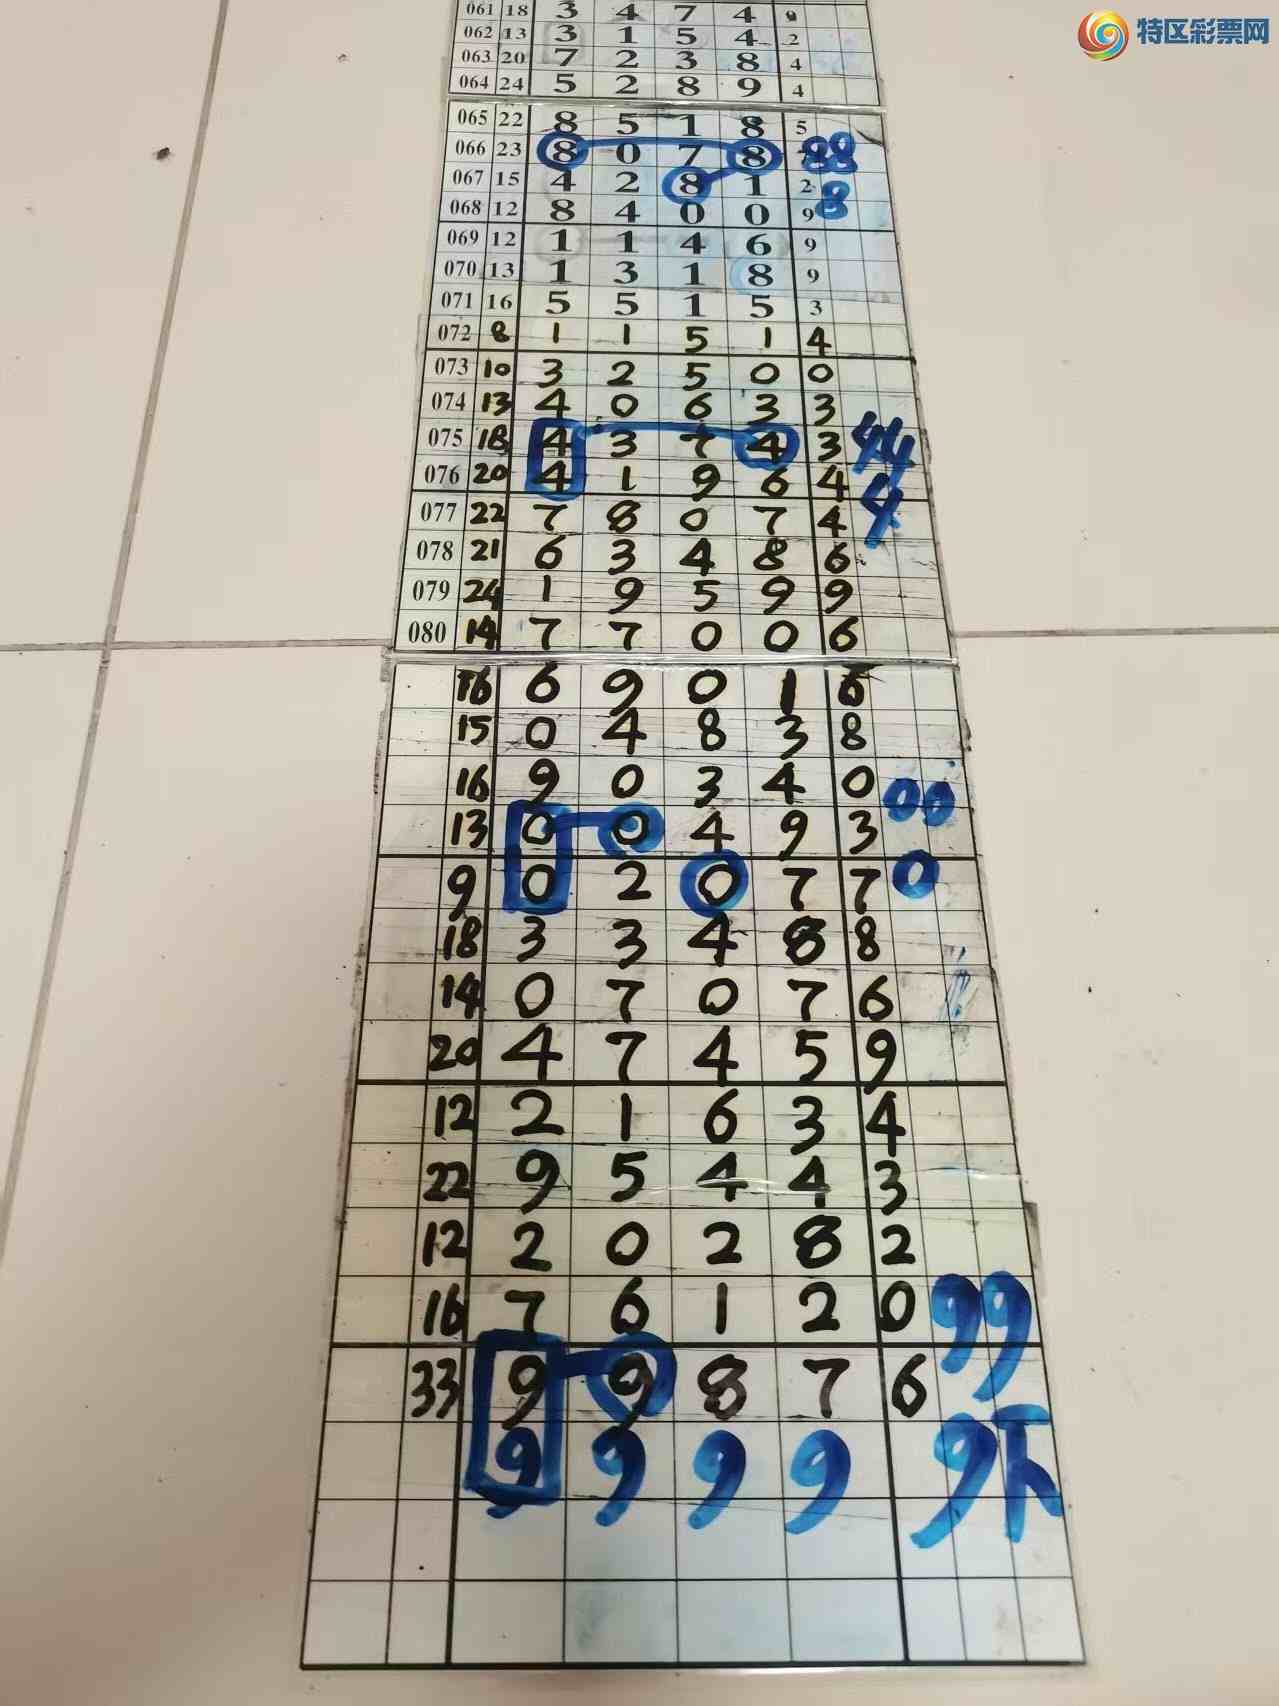 特区彩票网
061 18 3 4 7 4 9
062 13 3 1 5 4 2
063 20 7 2 3 8 4
064 24 5 2 8 9 4
065 22 8 5 1 8 5
066 23 8 0 7 8 88
067 15 4 2 8 1 2 8
068 12 8 4 0 0 9
069 12 1 1 4 6 9
070 13 1 3 1 8 9
071 16 5 5 1 5 3
072 8 1 1 5 1 4
073 10 3 2 5 0 0
074 13 4 0 6 3 3
075 18 4 3 7 4 3 44
076 20 4 1 9 6 4 4
077 22 7 8 0 7 4
078 21 6 3 4 8 6
079 24 1 9 5 9 9
080 14 7 7 0 0 6
16 6 9 0 1 6
15 0 4 8 3 8
16 9 0 3 4 0 00
13 0 0 4 9 3
9 0 2 0 7 7 0
18 3 3 4 8 8
14 0 7 0 7 6
20 4 7 4 5 9
12 2 1 6 3 4
22 9 5 4 4 3
12 2 0 2 8 2
16 7 6 1 2 0 99
33 9 9 8 7 6
9 9 9 9 9下